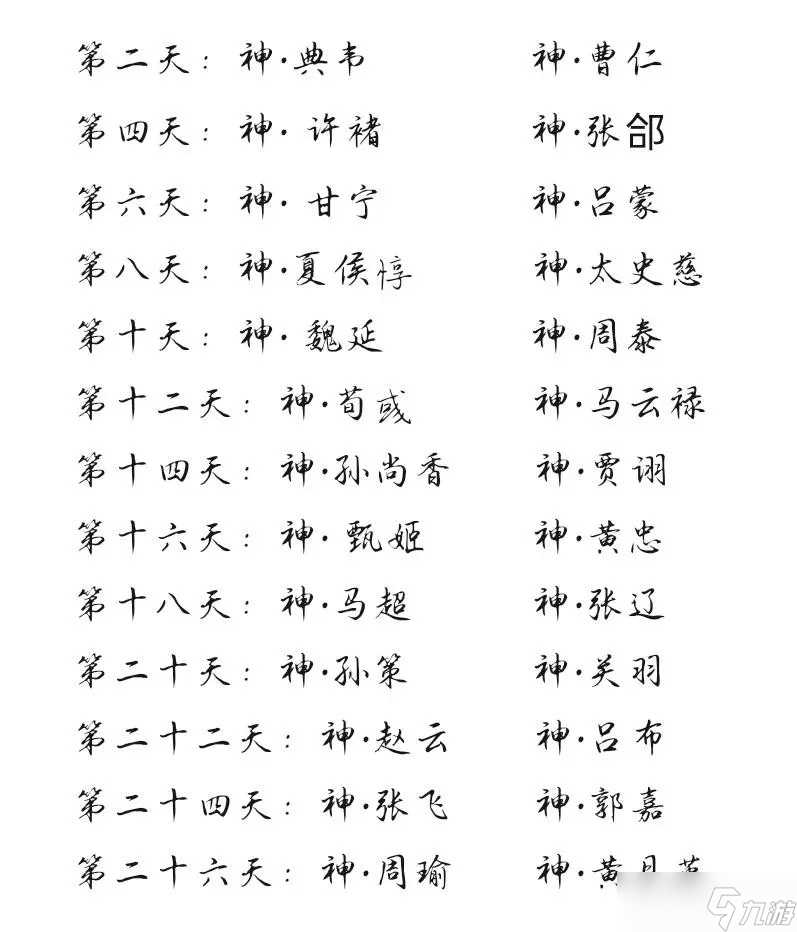 第二天：神·典韦 神·曹仁
第四天：神·许褚 神·张郃
第六天：神·甘宁 神·吕蒙
第八天：神·夏侯惇 神·太史慈
第十天：神·魏延 神·周泰
第十二天：神·荀彧 神·马云禄
第十四天：神·孙尚香 神·贾诩
第十六天：神·甄姬 神·黄忠
第十八天：神·马超 神·张辽
第二十天：神·孙策 神·关羽
第二十二天：神·赵云 神·吕布
第二十四天：神·张飞 神·郭嘉
第二十六天：神·周瑜 神·黄月英
九游